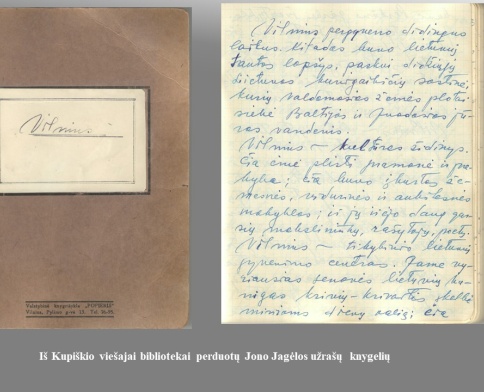 Vilnius
Valstybinė knygrišykla
Vilnius pergyveno didingus
laikus. Kitados buvo lietuvių
tautos lopšys, paskui didžiųjų
Lietuvos kunigaikščių sostinė,
kurių valdomosios žemės plotai
siekė Baltijos ir Juodosios jū-
ros vandenis.
Vilnius – kultūros židinys.
Čia ėmė plisti pramonė ir pre-
kyba; čia buvo įkurtos že-
mesnės, vidurinės ir aukštesnės
mokyklos; iš jų išėjo daug gar-
sių mokslininkų, rašytojų, poetų.
Vilnius – tikybinis lietuvių
gyvenimo centras. Jame vy-
riausias senovės lietuvių ku-
nigas krivių-krivaitis skelbė
minioms dievų valią; čia
Iš Kupiškio viešajai bibliotekai perduotų Jono Jagėlos užrašų knygelių